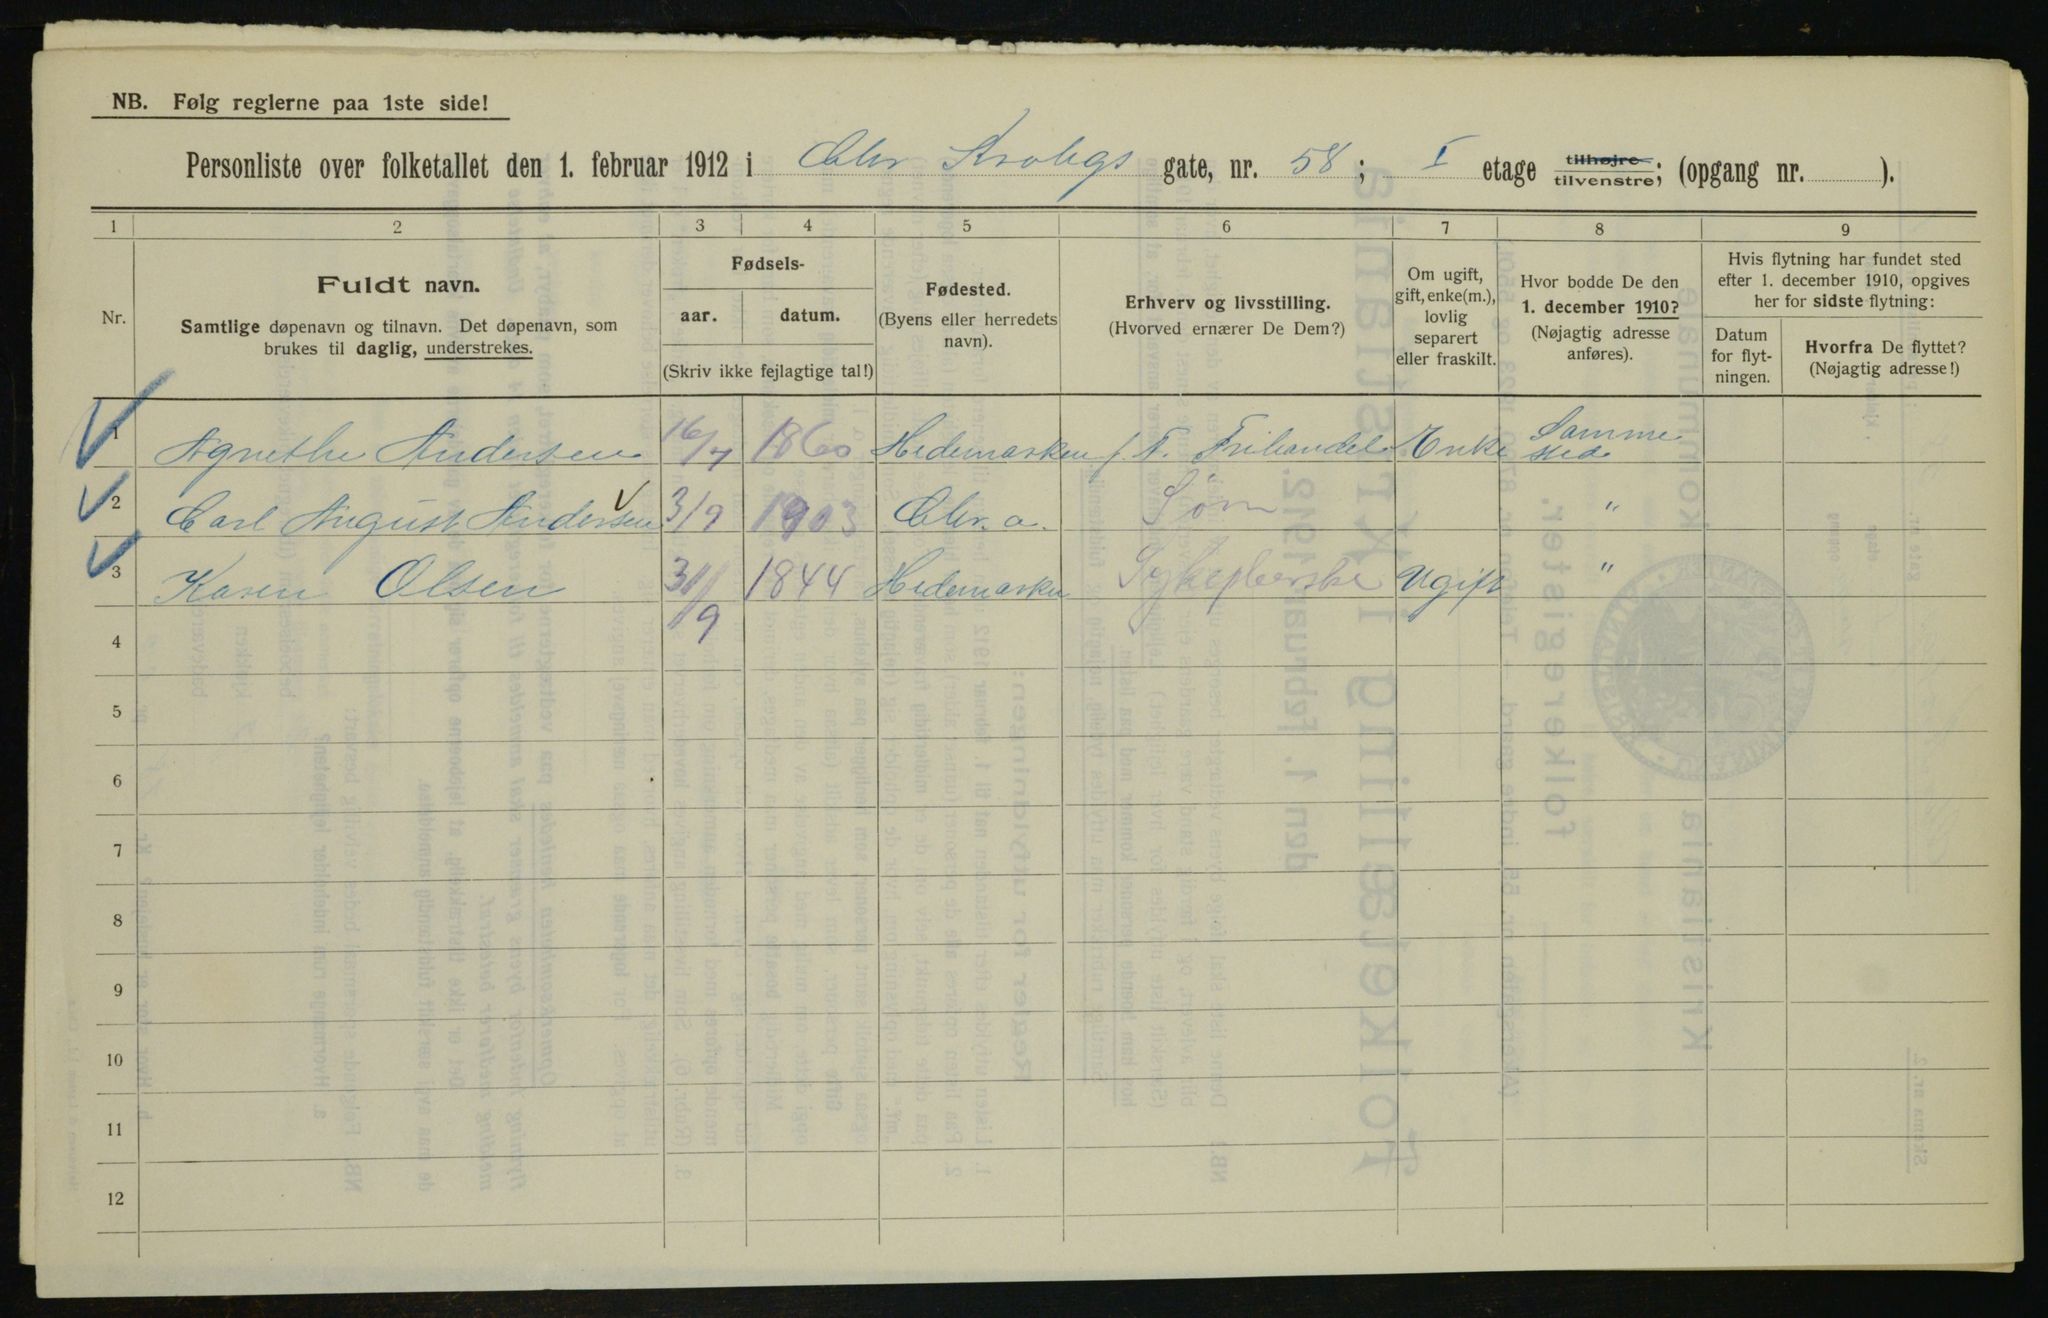 NB. Følg reglerne paa 1ste side!
Personliste over folketallet den 1. februar 1912 i Chr Krohgs gate, nr. 58; I etage tilhøjre tilvenstre; (opgang nr. ).
1 2 3 4 5 6 7 8 9
Nr.
Fuldt navn.
Samtlige døpenavn og tilnavn. Det døpenavn, som
brukes til daglig, understrekes.
Fødsels-
aar. datum.
(Skriv ikke fejlagtige tal!)
Fødested.
(Byens eller herredets
navn).
Erhverv og livsstilling.
(Hvorved ernærer De Dem?)
Om ugift,
gift, enke(m.),
lovlig
separert
eller fraskilt.
Hvor bodde De den
1. december 1910?
(Nøjagtig adresse
anføres).
Hvis flytning har fundet sted
efter 1. december 1910, opgives
her for sidste flytning:
Datum
for flyt-
ningen.
Hvorfra De flyttet?
(Nøjagtig adresse!)
1 Agnethe Andersen 16/7 1860 Hedemarken f. T. Frihandel Enke Samme sted
2 Carl August Andersen 3/9 1903 Chr. a. Søn "
3 Karen Olsen 31/9 1844 Hedemarken Sykepleerske Ugift "
4
5
6
7
8
9
10
11
12